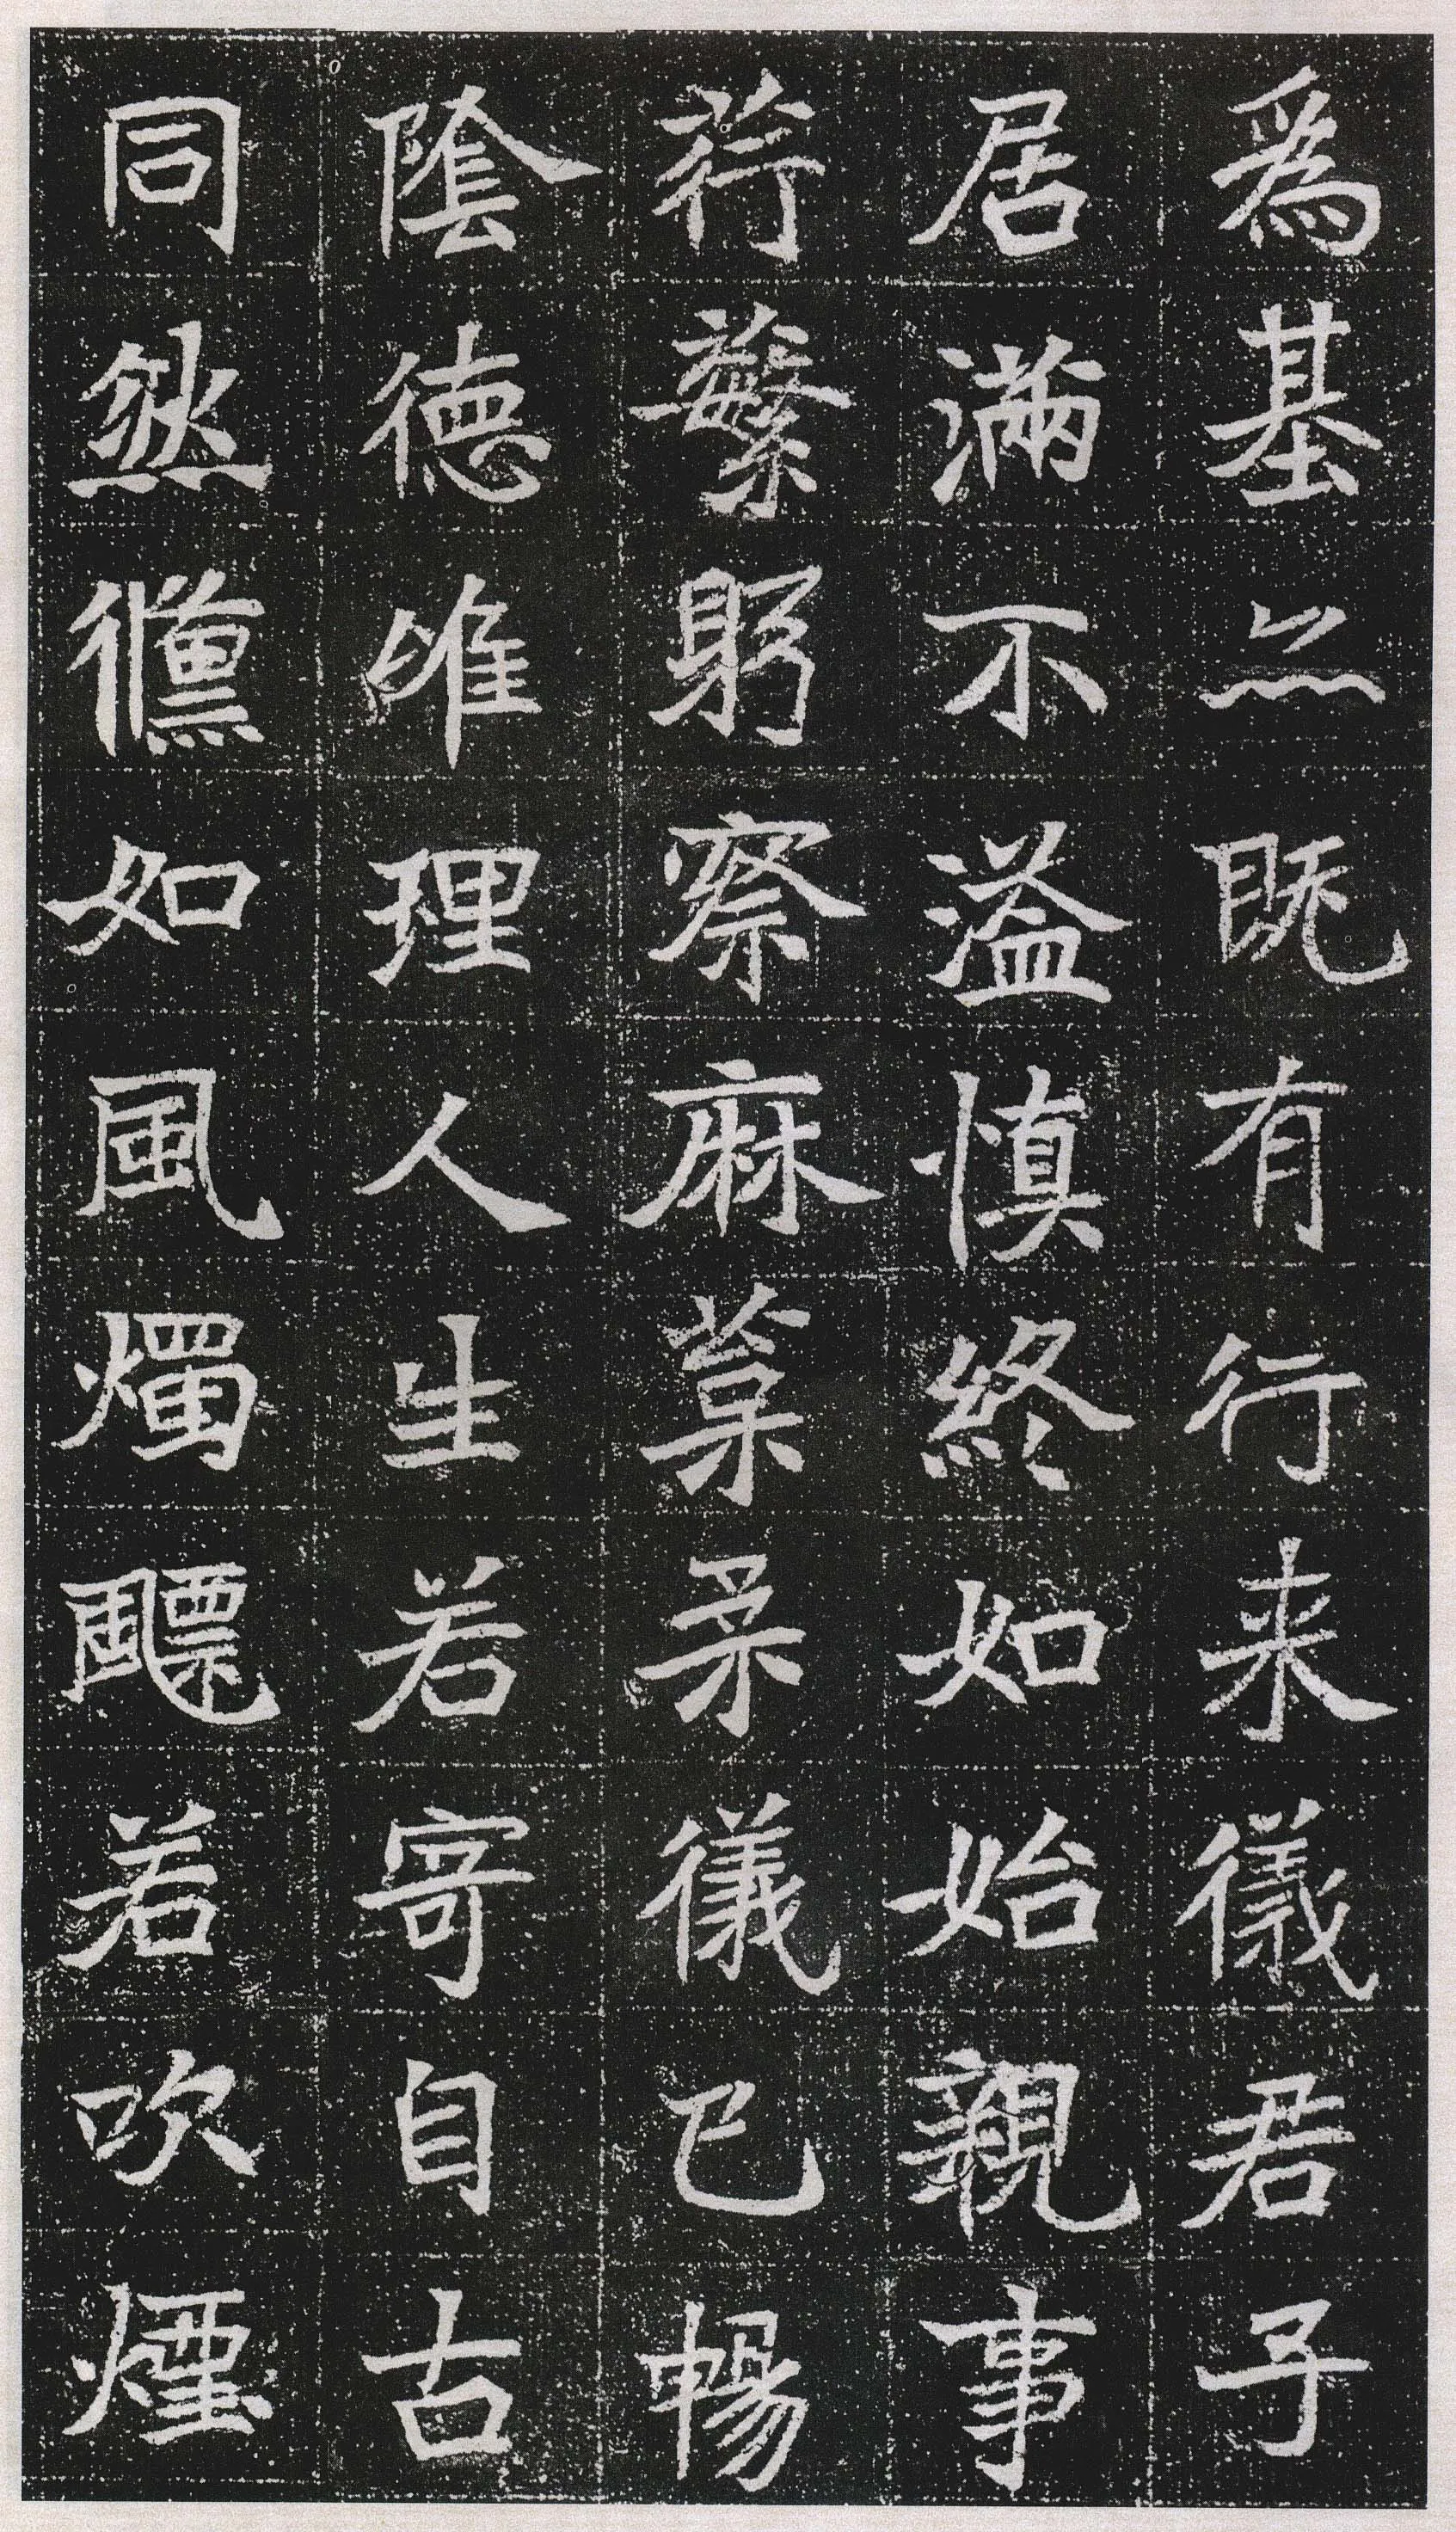 為基亦既有行来儀君子
居滿不溢慎終如始親事
荇蘩躬察麻葈柔儀已暢
陰德唯理人生若寄自古
同然儵如風燭飄若吹煙